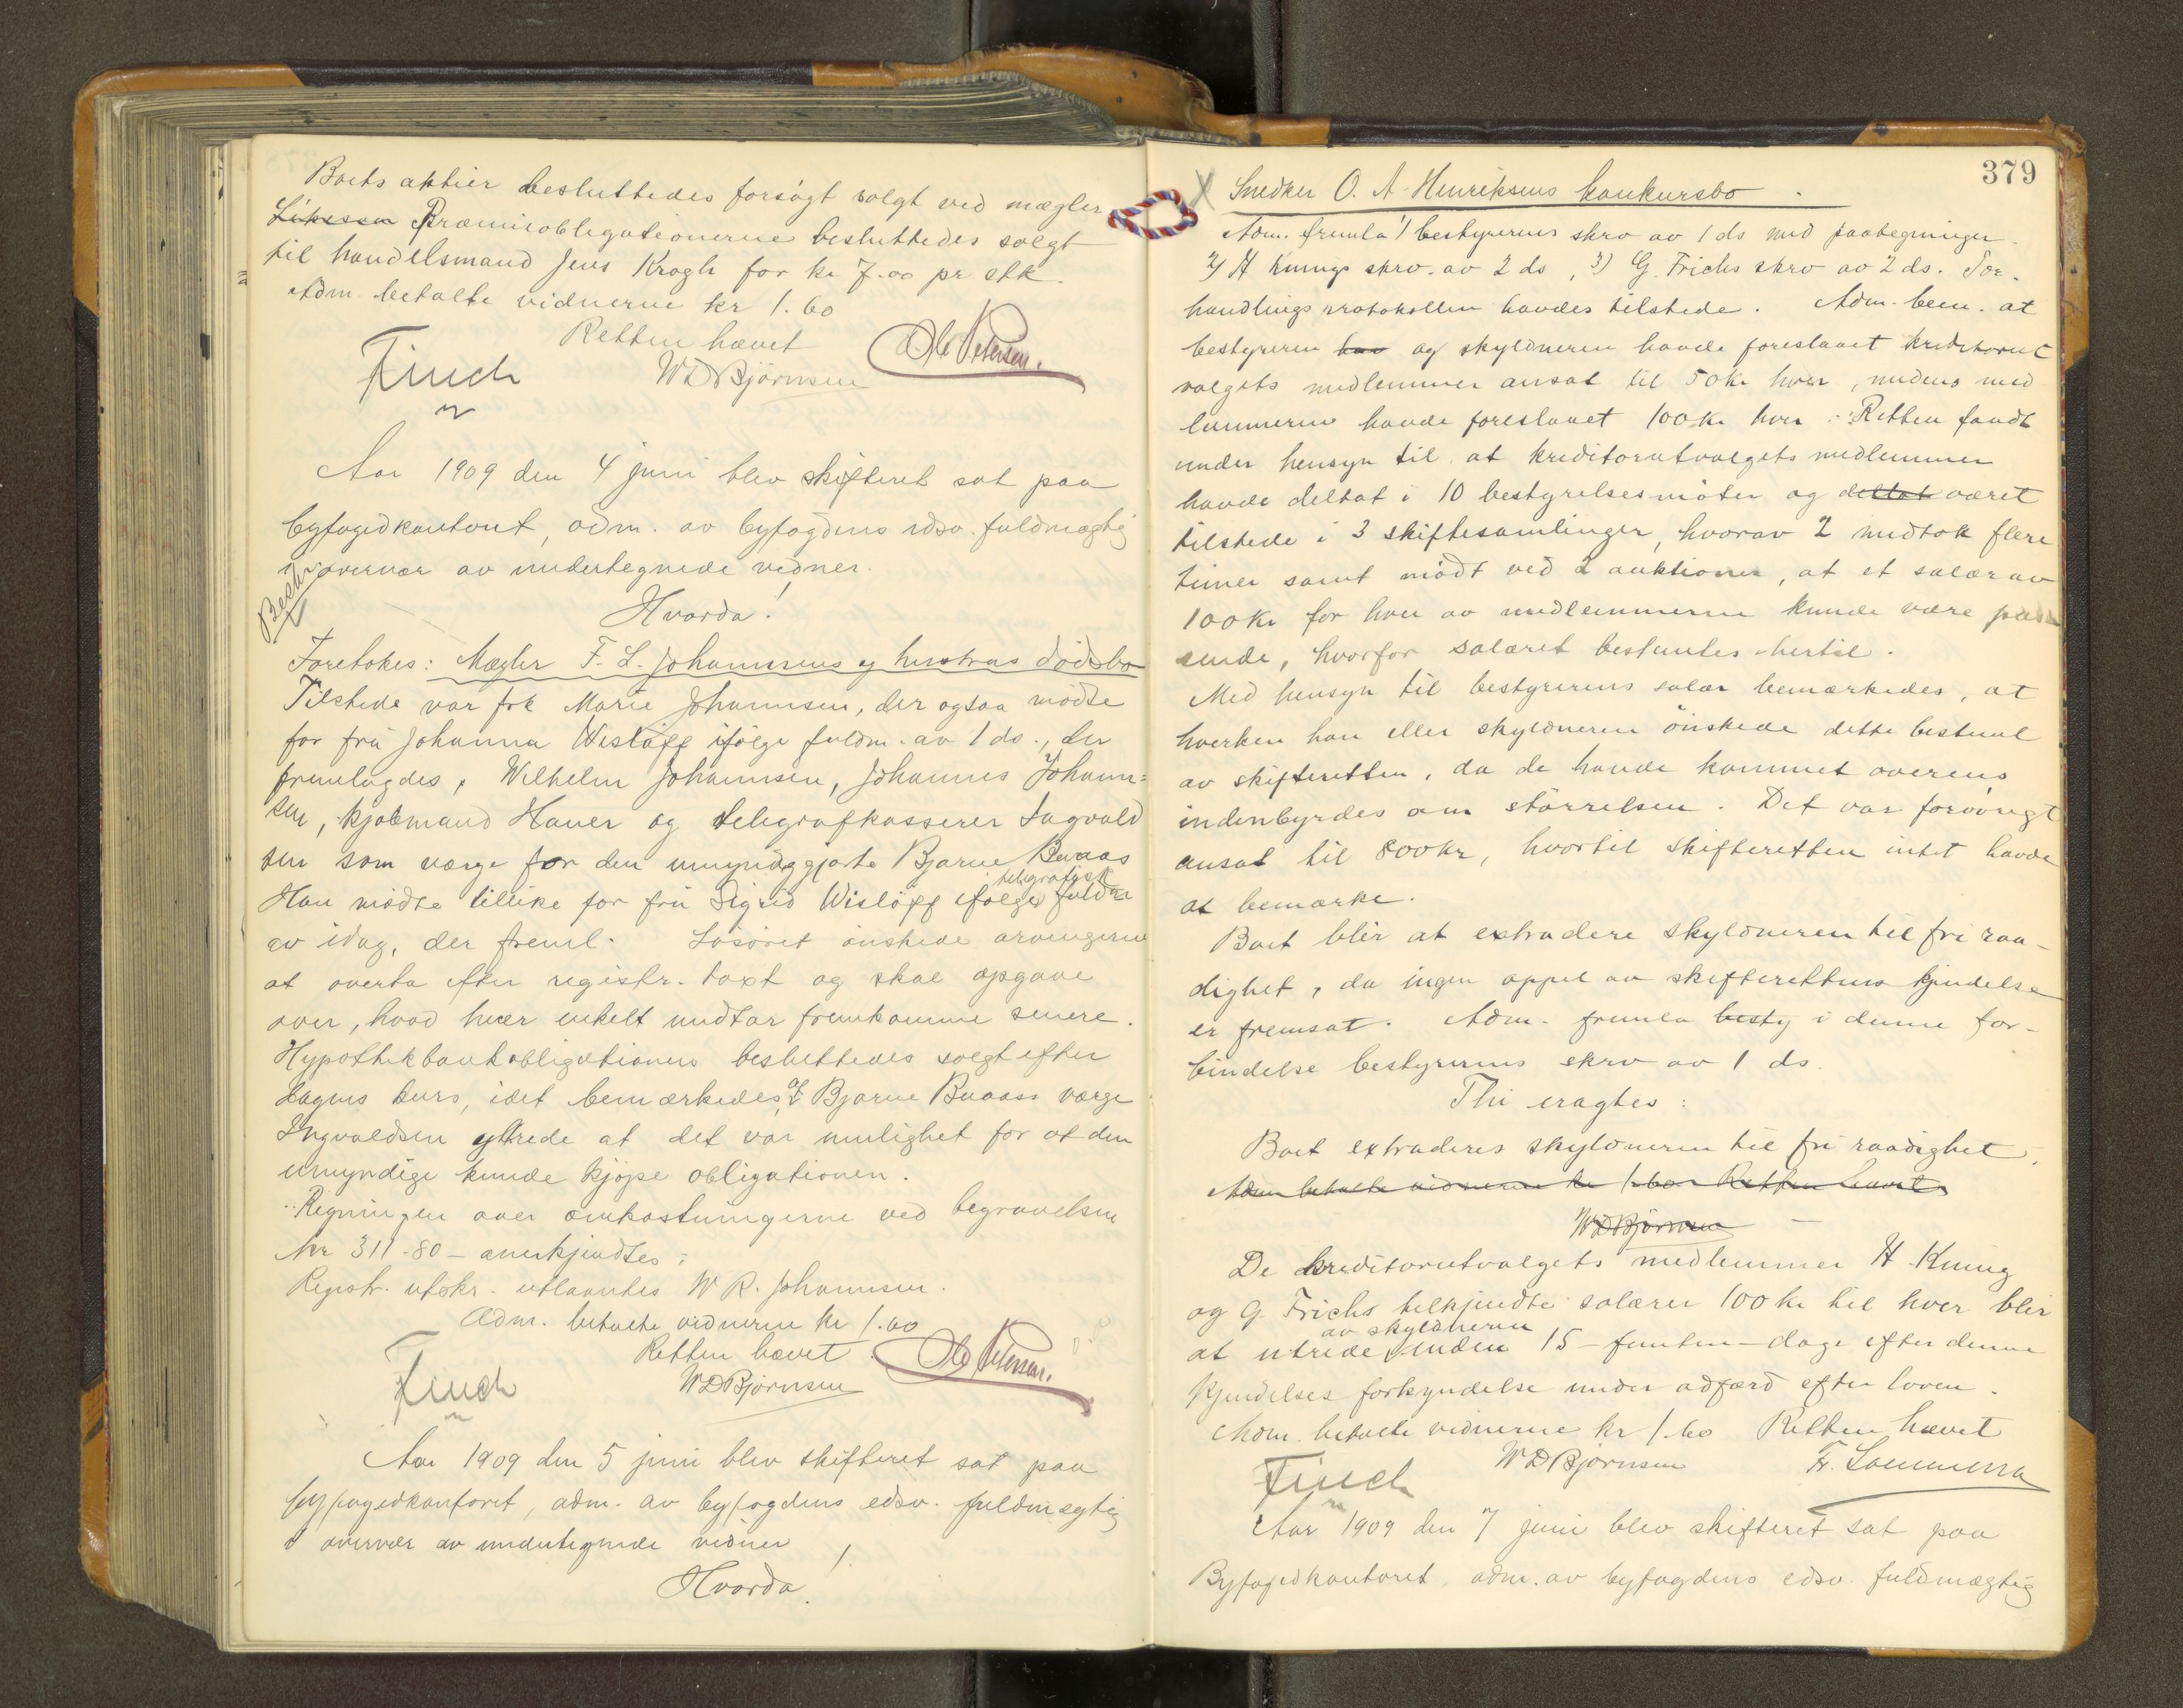 Boets aktier besluttedes forsøgt solgt ved mægler
Præmieobligationerne besluttedes solgt
til handelsmand Jens Krogh for kr 7.00 pr stk.
Adm. betalte vidnerne kr 1.60
Retten hævet
Finch WDBjørnsen Ole Petersen.
Aar 1909 den 4 juni blev skifteret sat paa
byfogedkontoret, adm. av byfogdens edsv. fuldmægtig
i overvær av undertegnede vidner.
Beskr.
Hvorda!
Foretokes: Mægler F. L. Johannsens og hustrus dødsbo
Tilstede var frk Marie Johannsen, der ogsaa mødte
for fru Johanna Wisløff ifølge fuldm. av 1 ds., der
fremlagdes, Wilhelm Johannsen, Johannes Johann=
sen, kjøbmand Hauer og telegrafkasserer Ingvald
sen som værge for den umyndiggjorte Bjarne Buaas
telegrafisk
Han mødte tillike for fru Sigrid Wisløff ifølge fuldm
av idag, der freml. Løsøret ønskede arvingerne
at overta efter registr. taxt og skal opgave
over, hvad hver enkelt mottar fremkomme senere.
Hypothekbankobligationens besluttedes solgt efter
dagens kurs, idet bemærkedes, at Bjarne Buaas værge
Ingvaldsen ytrede at det var mulighet for at den
umyndige kunde kjøpe obligationen.
Regningen over omkostningerne ved begravelsen
Kr 311-80 - anerkjendtes;
Registr. utskr. utlaantes W R. Johannsen.
Adm. betalte vidnerne kr 1.60
Retten hævet
Finch WDBjørnsen Ole Petersen.
Aar 1909 den 5 juni blev skifteret sat paa
byfogedkontoret, adm. av byfogdens edsv. fuldmægtig
i overvær av undertegnede vidner
Hvorda!
379
X Snedker O. A. Henriksens konkursbo.
Adm. fremla 1/ bestyrerens skrv av 1 ds med paategninger
2/ H Knings skrv. av 2 ds, 3) G. Frichs skrv av 2 ds. For-
handlingsprotokollen havdes tilstede. Adm. bem. at
bestyreren hav og skyldneren havde foreslaaet kreditorut
valgets medlemmer ansat til 50 kr hver, medens med
lemmerne havde foreslaaet 100 kr hver. Retten fandt
under hensyn til at kreditorutvalgets medlemmer
havde deltat i 10 bestyrelsesmøter og deltat været
tilstede i 3 skiftesamlinger, hvorav 2 medtok flere
timer samt mødt ved 2 auktioner, at et salær av
100 kr for hver av medlemmerne kunde være pas
sende, hvorfor salæret bestemtes hertil.
Med hensyn til bestyrerens salær bemærkedes, at
hverken han eller skyldneren ønskede dette bestemt
av skifteretten, da de havde kommet overens
indenbyrdes om størrelsen. Det var forøvrigt
ansat til 800 kr, hvortil skifteretten intet havde
at bemærke.
Boet blir at extradere skyldneren til fri raa-
dighet, da ingen appel av skifterettens kjendelse
er fremsat. Adm. fremla besty i denne for-
bindelse bestyrerens skrv av 1 ds.
Thi eragtes:
Boet extraderes skyldneren til fri raadighet.
Adm betalte vidnerne kr 1.60. Retten hævet
WDBjørnsen
De kreditorutvalgets medlemmer H. Kning
og G. Frichs tilkjendte salærer 100 kr til hver blir
av skyldneren
at utrede inden 15 - femten - dage efter denne
kjendelses forkyndelse under adfærd efter loven.
Adm. betalte vidnerne kr 1.60 Retten hævet
Finch WDBjørnsen
Aar 1909 den 7 juni blev skifteret sat paa
Byfogedkontoret, adm. av byfogdens edsv. fuldmægtig